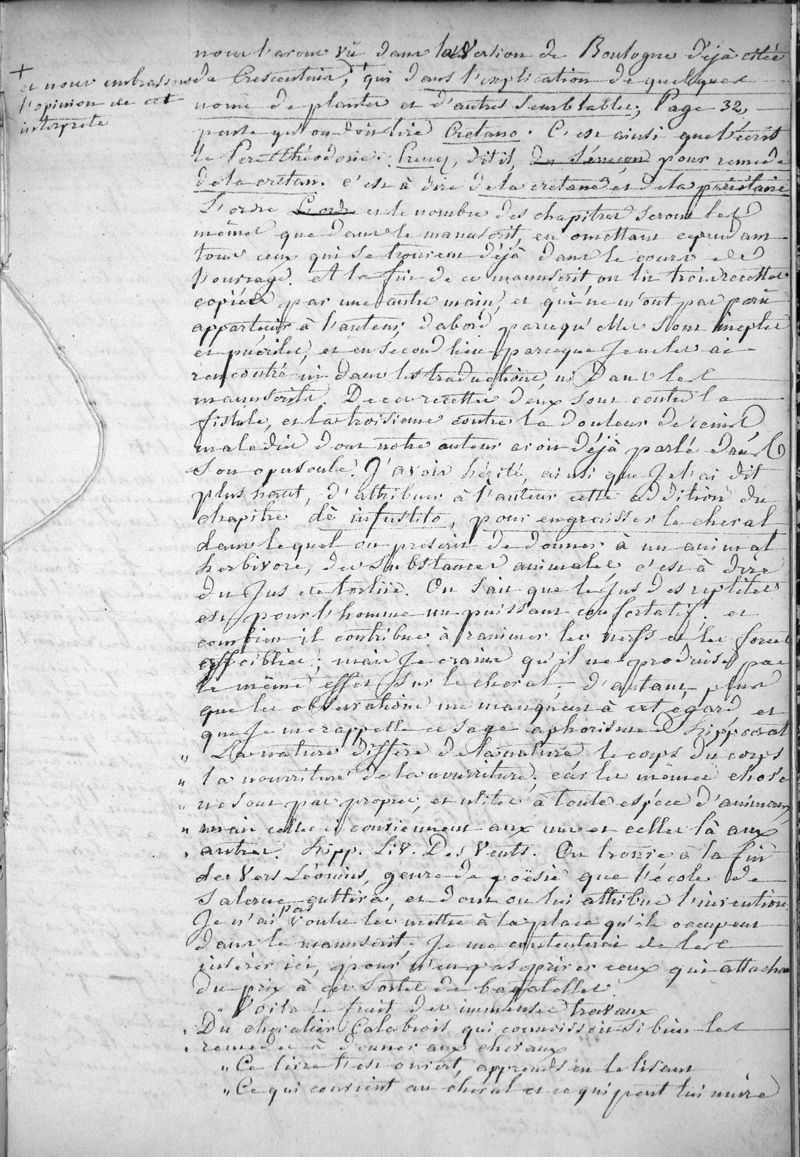 nous l'avons vû dans la version de Boulogne déjà citée
+
et nous embrassons
l'opinion de cet
interprète
de Crescentius, qui dans l'explication de quelques
noms de plantes et d'autres semblables, Page 32,
pense qu'on doit lire Cretano. C'est ainsi que l'écrit
le Per Théodoric: Prenez, dit il, du Séneçon pour remede
de la cretan. c'est à dire de la cretane et de la pariétaire
L'ordre L'ordr et le nombre des chapitres seront les
mêmes que dans le manuscrit, en omettant cependant
tous ceux qui se trouvent déjà dans le cours de
l'ouvrage. A la fin de ce manuscrit on lit trois recettes
copiées par une autre main, et qui ne m'ont pas paru
appartenir à l'auteur, d'abord parcequ'elles sont ineptes
et puériles, et en second lieu parceque je ne les ai
rencontré ni dans les traductions, ni dans les
manuscrits. De ces recettes deux sont contre la
fistule, et la troisieme contre la douleur de reins
maladie dont notre auteur avoit déjà parlé dans
son opuscule. J'avois hésité, ainsi que je l'ai dit
plus haut, d'attribuer à l'auteur cette addition du
chapitre de infustito, pour engraisser le cheval
dans lequel on prescrit de donner à un animal
herbivore, des substances animales c'est à dire
du jus de tortue. On sait que le jus des reptiles
est pour l'homme un puissant confortatif et
combien il contribue à ranimer les nerfs et les forces
affoiblies; mais je crains qu'il ne produise pas
le même effet sur le cheval, d'autant plus
que les observations me manquent à cet égard et
que je me rappelle ce sage aphorisme d'hippocrat
" La nature diffère de la nature le corps du corps
" la nourriture de la nourriture, car les mêmes choses
" ne sont pas propres, et utiles à toute espèce d'animaux,
" mais celles ci conviennent aux uns et celles là aux
" autres. hipp. Liv. Des Vents. On trouve à la fin
des vers Léonins, genre de poësie que l'école de
Salerne cultiva, et dont on lui attribue l'invention
Je n'ai pas voulu les mettre à la place qu'ils occupent
dans le manuscrit. Je me contenterai de les
insérer ici, pour n'en pas priver ceux qui attachent
du prix à ces sortes de bagatelles
" Voila le fruit des immenses travaux
" Du chevalier Calabrois qui connoissoit si bien les
" remedes à donner aux chevaux
" Ce livre t'est ouvert, apprends en le lisant
" Ce qui convient au cheval et ce qui peut lui nuire